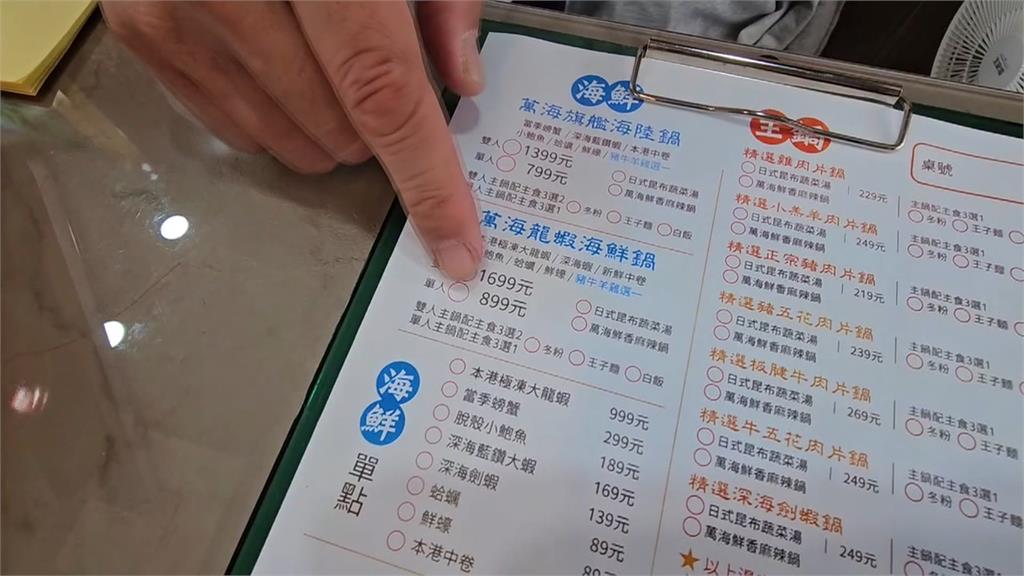 海鮮
萬海旗艦海陸鍋
當季螃蟹/深海藍鑽蝦/本港中卷
小鮑魚/蛤蠣/鮮蠔/豬牛羊雞選一
雙人 1399元
單人 799元
日式昆布蔬菜湯
萬海鮮香麻辣鍋
雙人主鍋配主食3選2
單人主鍋配主食3選1 冬粉 王子麵 白飯
萬海龍蝦海鮮鍋
港極凍大龍蝦/深海蝦/新鮮中卷
鮑魚/蛤蠣/鮮蠔/豬牛羊雞選一
1699元
單人 899元
日式昆布蔬菜湯
萬海鮮香麻辣鍋
雙人主鍋配主食3選2
單人主鍋配主食3選1 冬粉 王子麵 白飯
海鮮
單點
本港極凍大龍蝦 999元
當季螃蟹 299元
脫殼小鮑魚 189元
深海藍鑽大蝦 169元
深海劍蝦 139元
蛤蠣 89元
鮮蠔 89元
本港中卷
主鍋
桌號
精選雞肉片鍋
日式昆布蔬菜湯
萬海鮮香麻辣鍋
229元
主鍋配主食3選1
冬粉 王子麵
精選小羔羊肉片鍋
日式昆布蔬菜湯
萬海鮮香麻辣鍋
249元
主鍋配主食3選1
冬粉 王子麵
精選正宗豬肉片鍋
日式昆布蔬菜湯
萬海鮮香麻辣鍋
219元
主鍋配主食3選1
冬粉 王子麵
精選豬五花肉片鍋
日式昆布蔬菜湯
萬海鮮香麻辣鍋
239元
主鍋配主食3選1
冬粉 王子麵
精選板腱牛肉片鍋
日式昆布蔬菜湯
萬海鮮香麻辣鍋
269元
主鍋配主食3選1
冬粉 王子麵
精選牛五花肉片鍋
日式昆布蔬菜湯
萬海鮮香麻辣鍋
249元
主鍋配主食3選1
冬粉 王子麵
精選深海劍蝦鍋
日式昆布蔬菜湯
萬海鮮香麻辣鍋
249元
主鍋配主食3選1
冬粉
以上